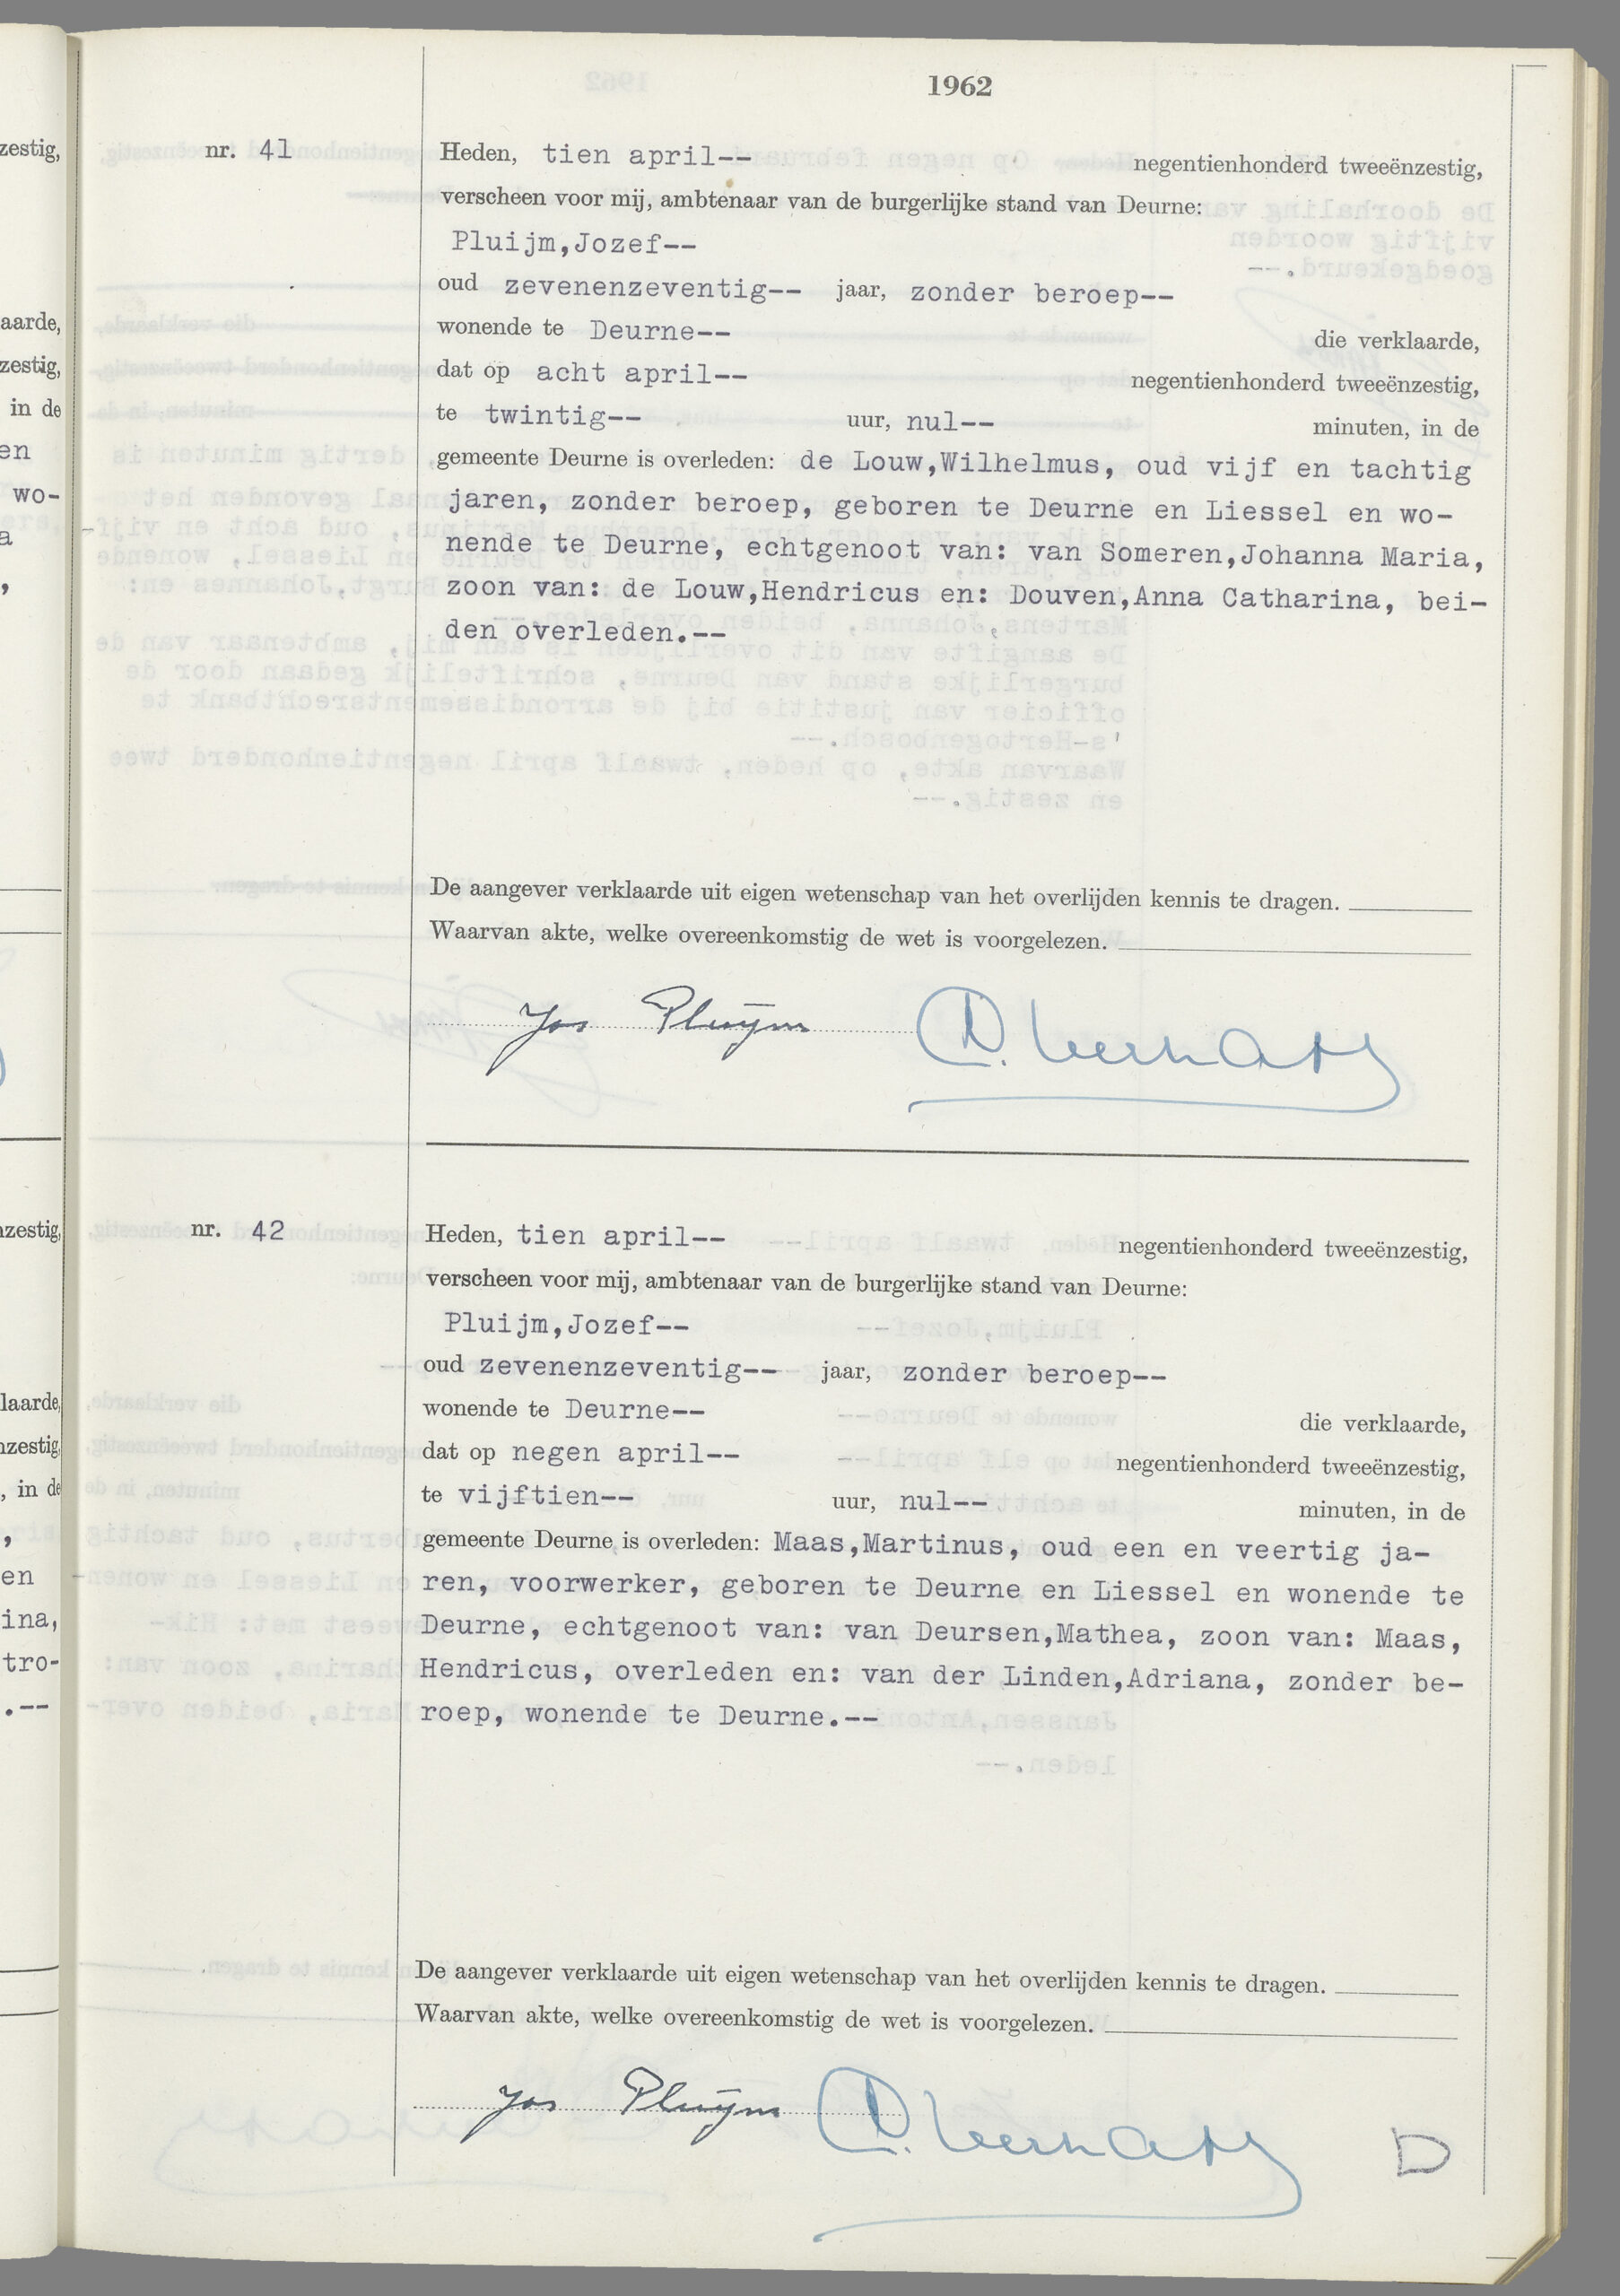 1962
nr. 41
Heden, tien april-- negentienhonderd tweeënzestig,
verscheen voor mij, ambtenaar van de burgerlijke stand van Deurne:
Pluijm,Jozef--
oud zevenenzeventig-- jaar, zonder beroep--
wonende te Deurne-- die verklaarde,
dat op acht april-- negentienhonderd tweeënzestig,
te twintig-- uur, nul-- minuten, in de
gemeente Deurne is overleden: de Louw,Wilhelmus, oud vijf en tachtig
jaren, zonder beroep, geboren te Deurne en Liessel en wo-
nende te Deurne, echtgenoot van: van Someren,Johanna Maria,
zoon van: de Louw,Hendricus en: Douven,Anna Catharina, bei-
den overleden.--
De aangever verklaarde uit eigen wetenschap van het overlijden kennis te dragen.
Waarvan akte, welke overeenkomstig de wet is voorgelezen.
Jos Pluijm
nr. 42
Heden, tien april-- negentienhonderd tweeënzestig,
verscheen voor mij, ambtenaar van de burgerlijke stand van Deurne:
Pluijm,Jozef--
oud zevenenzeventig-- jaar, zonder beroep--
wonende te Deurne-- die verklaarde,
dat op negen april-- negentienhonderd tweeënzestig,
te vijftien-- uur, nul-- minuten, in de
gemeente Deurne is overleden: Maas,Martinus, oud een en veertig ja-
ren, voorwerker, geboren te Deurne en Liessel en wonende te
Deurne, echtgenoot van: van Deursen,Mathea, zoon van: Maas,
Hendricus, overleden en: van der Linden,Adriana, zonder be-
roep, wonende te Deurne.--
De aangever verklaarde uit eigen wetenschap van het overlijden kennis te dragen.
Waarvan akte, welke overeenkomstig de wet is voorgelezen.
Jos Pluijm
D